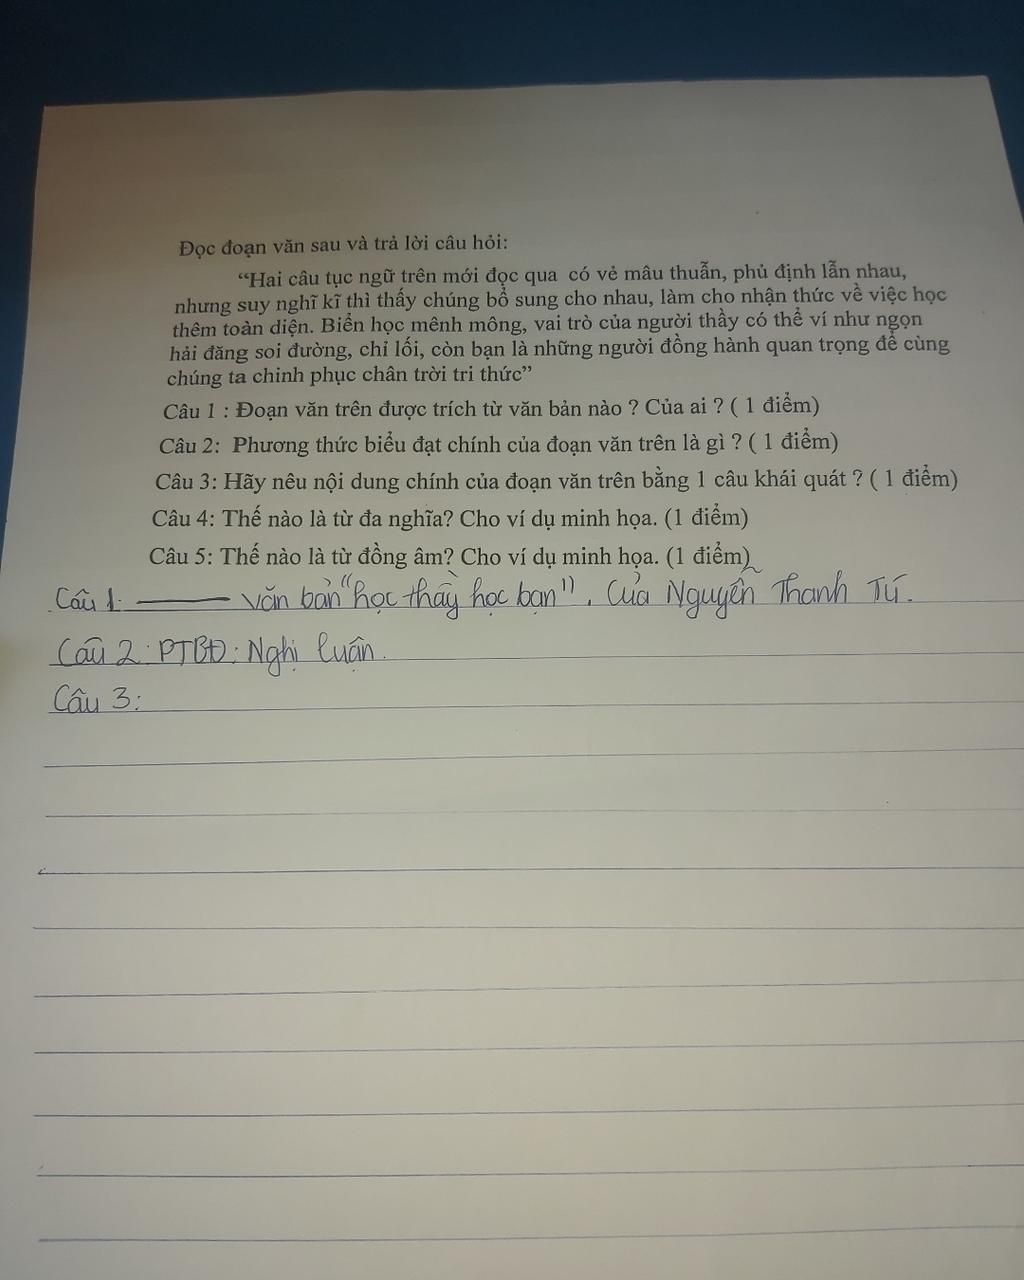 Đọc đoạn văn sau và trả lời câu hỏi:
“Hai câu tục ngữ trên mới đọc qua có vẻ mâu thuẫn, phủ định lẫn nhau,
nhưng suy nghĩ kĩ thì thấy chúng bổ sung cho nhau, làm cho nhận thức về việc học
thêm toàn diện. Biển học mênh mông, vai trò của người thầy có thể ví như ngọn
hải đăng soi đường, chỉ lối, còn bạn là những người đồng hành quan trọng để cùng
chúng ta chinh phục chân trời tri thức”
Câu 1 : Đoạn văn trên được trích từ văn bản nào ? Của ai ? ( 1 điểm)
Câu 2: Phương thức biểu đạt chính của đoạn văn trên là gì ? ( 1 điểm)
Câu 3: Hãy nêu nội dung chính của đoạn văn trên bằng 1 câu khái quát ? ( 1 điểm)
Câu 4: Thế nào là từ đa nghĩa? Cho ví dụ minh họa. (1 điểm)
Câu 5: Thế nào là từ đồng âm? Cho ví dụ minh họa. (1 điểm)
Câu 1: văn bản "học thầy học bạn". Của Nguyễn Thanh Tú.
Câu 2: PTBĐ: Nghị luận.
Câu 3: